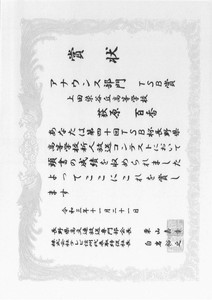 賞状
アナウンス部門 TSB賞
上田染谷丘高等学校
萩原 百香
あなたは第四十回TSB杯長野県
高等学校新人放送コンテストにおいて
頭書の成績を収められました
よってここにこれを賞し
ます
令和三年十一月二十一日
長野県高文連放送専門部会長
株式会社テレビ信州代表取締役社長